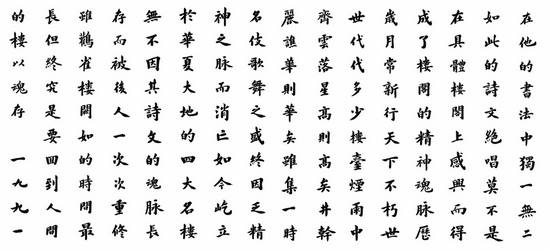 在他的書法中獨一無二
如此的詩文絕唱莫不是
在具體樓閣上感興而得
成了樓閣的精神魂脈歷
歲月常新行天下不朽世
世代代多少樓臺煙雨中
齊雲落星高則高矣井幹
麗譙華則華矣雖集一時
名伎歌舞之盛終因乏精
神之脈而消亡如今屹立
於華夏大地的四大名樓
無不因其詩文的魂脈長
存而被後人一次次重修
雖鸛雀樓闕如的時間最
長但終究是要回到人間
的樓以魂存 一九九一